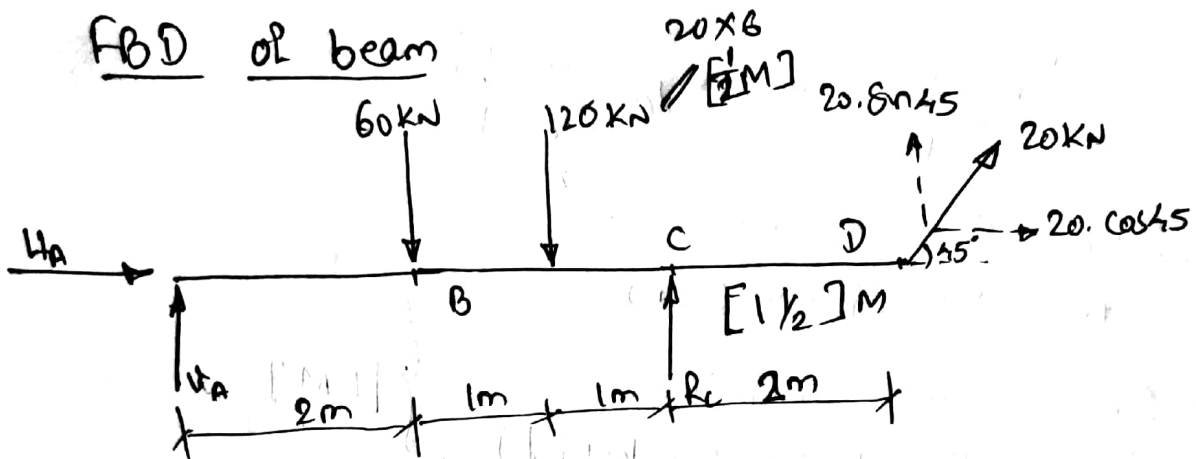 FBD of beam
20×6
[½M]
60KN
120KN
20.Sin45
20KN
20.cos45
45°
HA
B
C
D
[1 ½]M
VA
RC
2m
1m
1m
2m